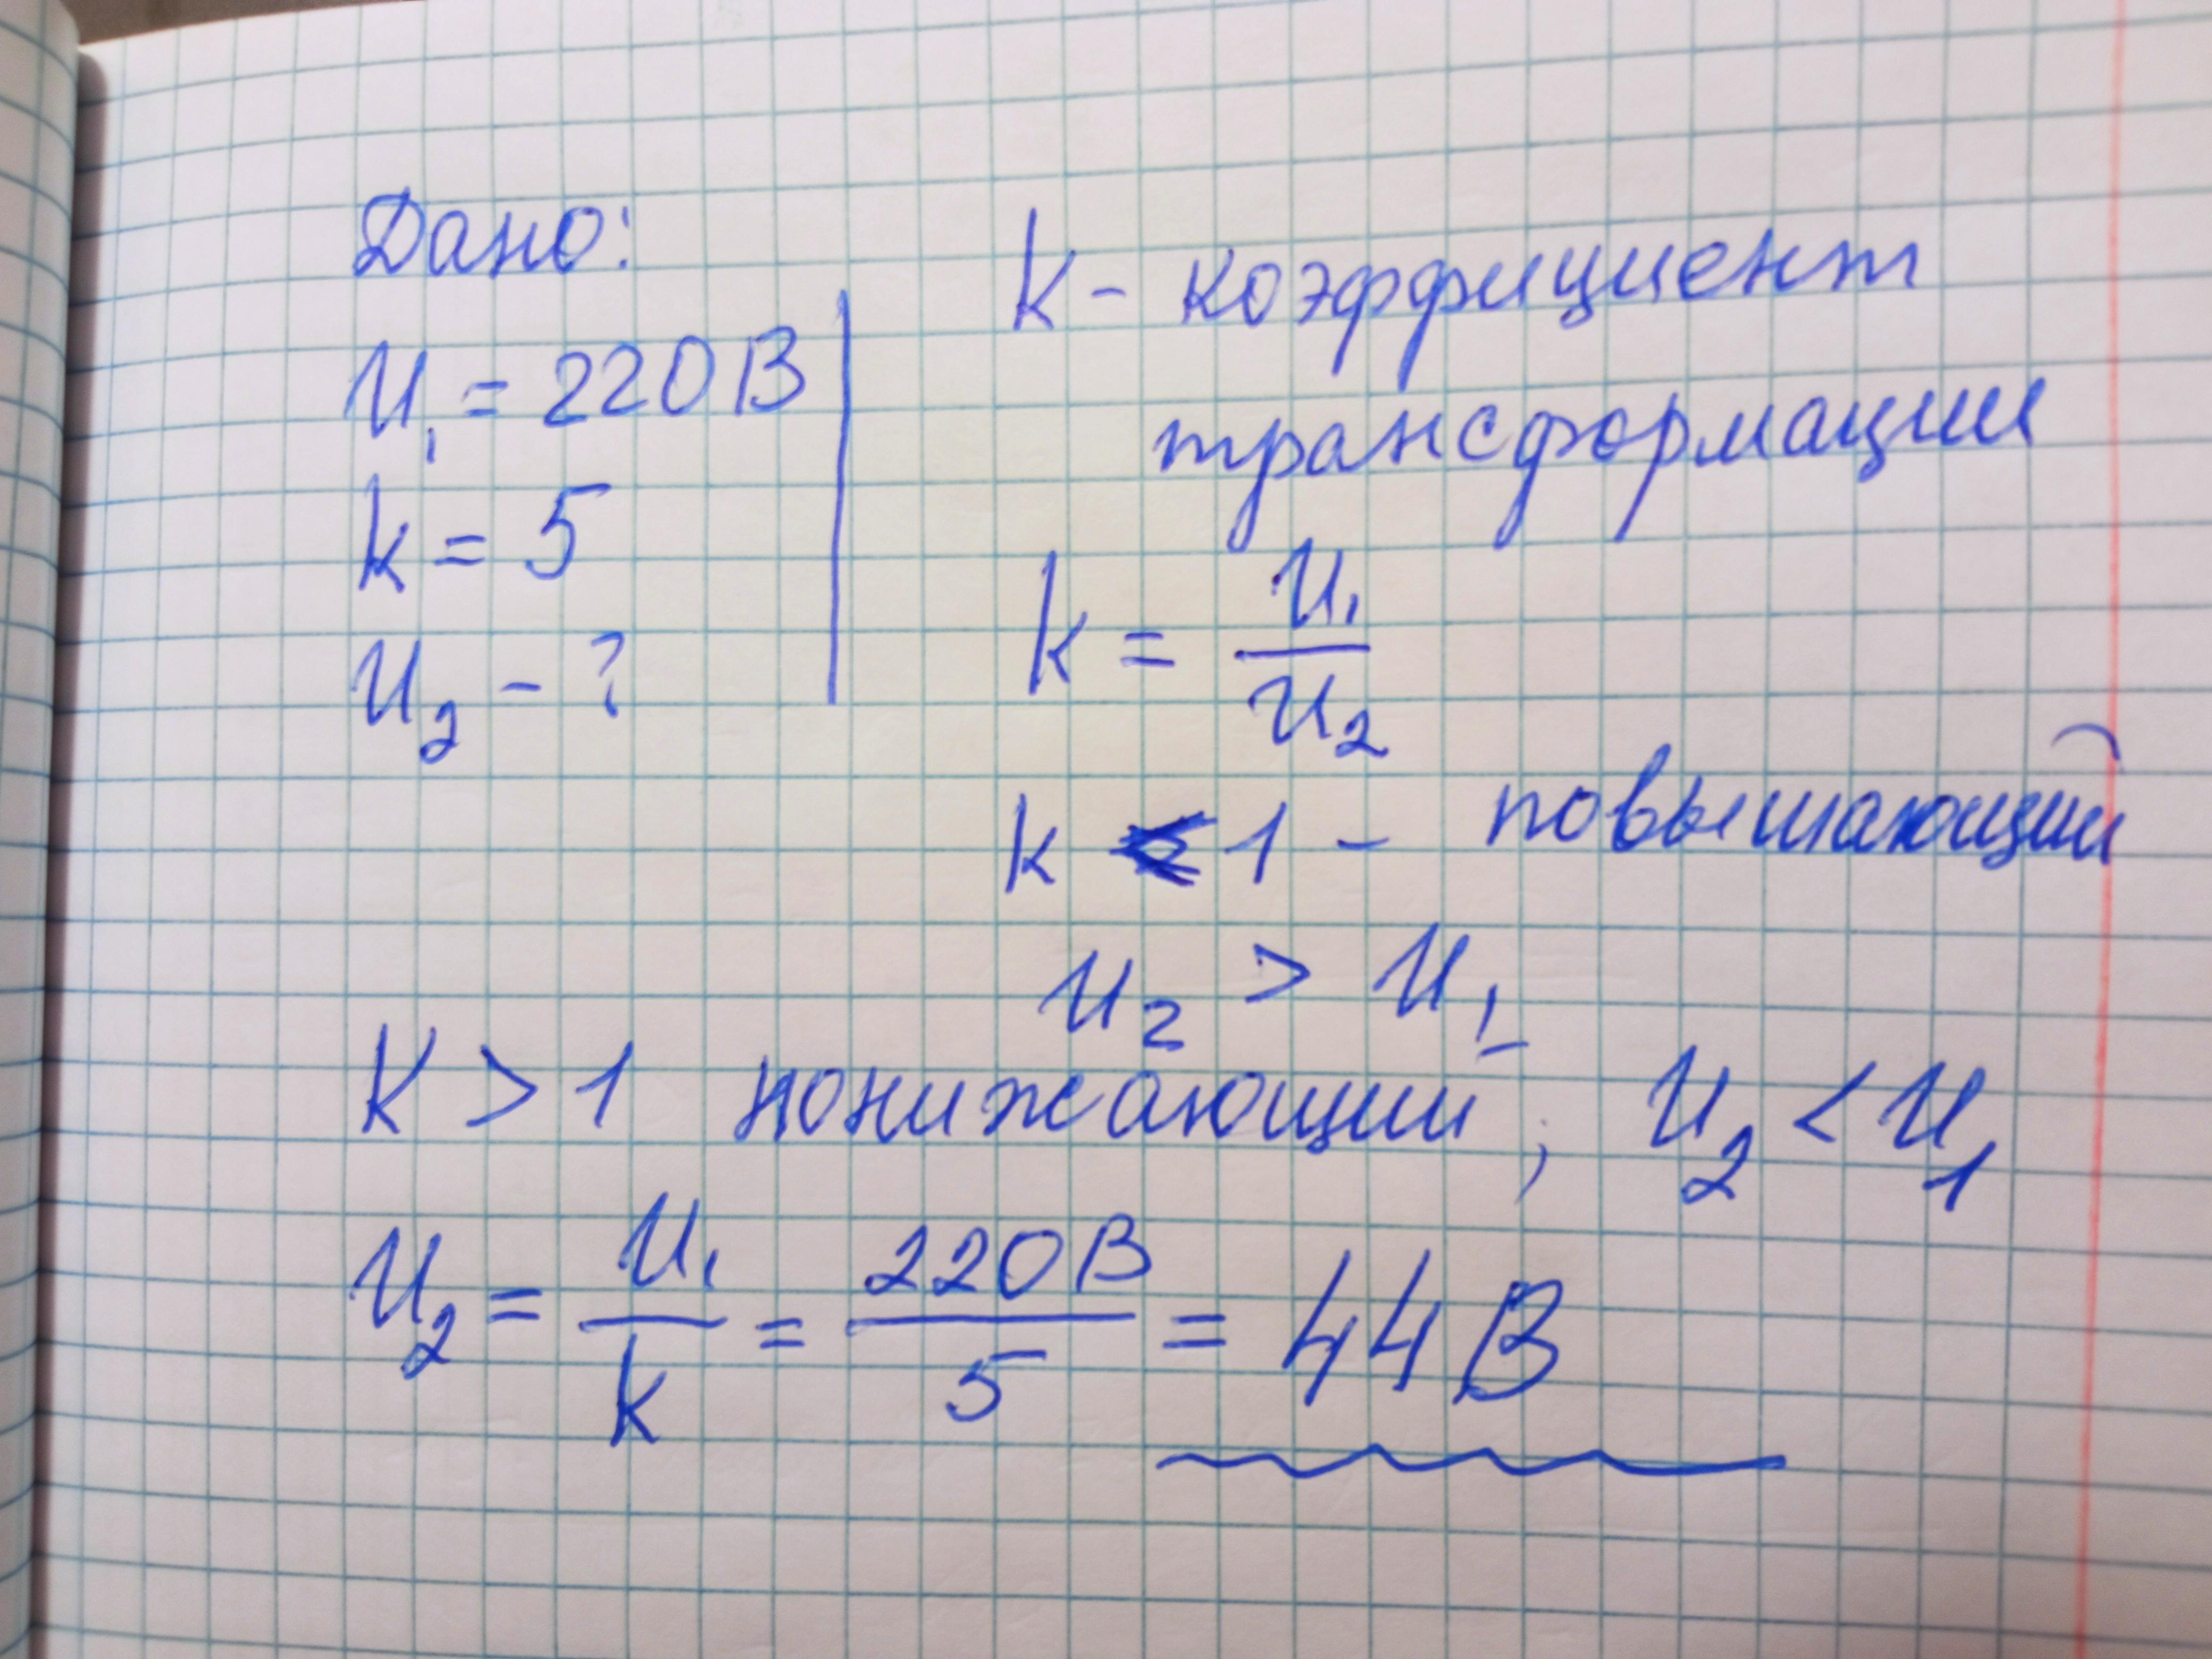 Дано:
U₁ = 220 В
k = 5
U₂ - ?
k - коэффициент
трансформации
k = U₁/U₂
k < 1 - повышающий
U₂ > U₁
K > 1 понижающий ; U₂ < U₁
U₂ = U₁/k = 220 В/5 = 44 В